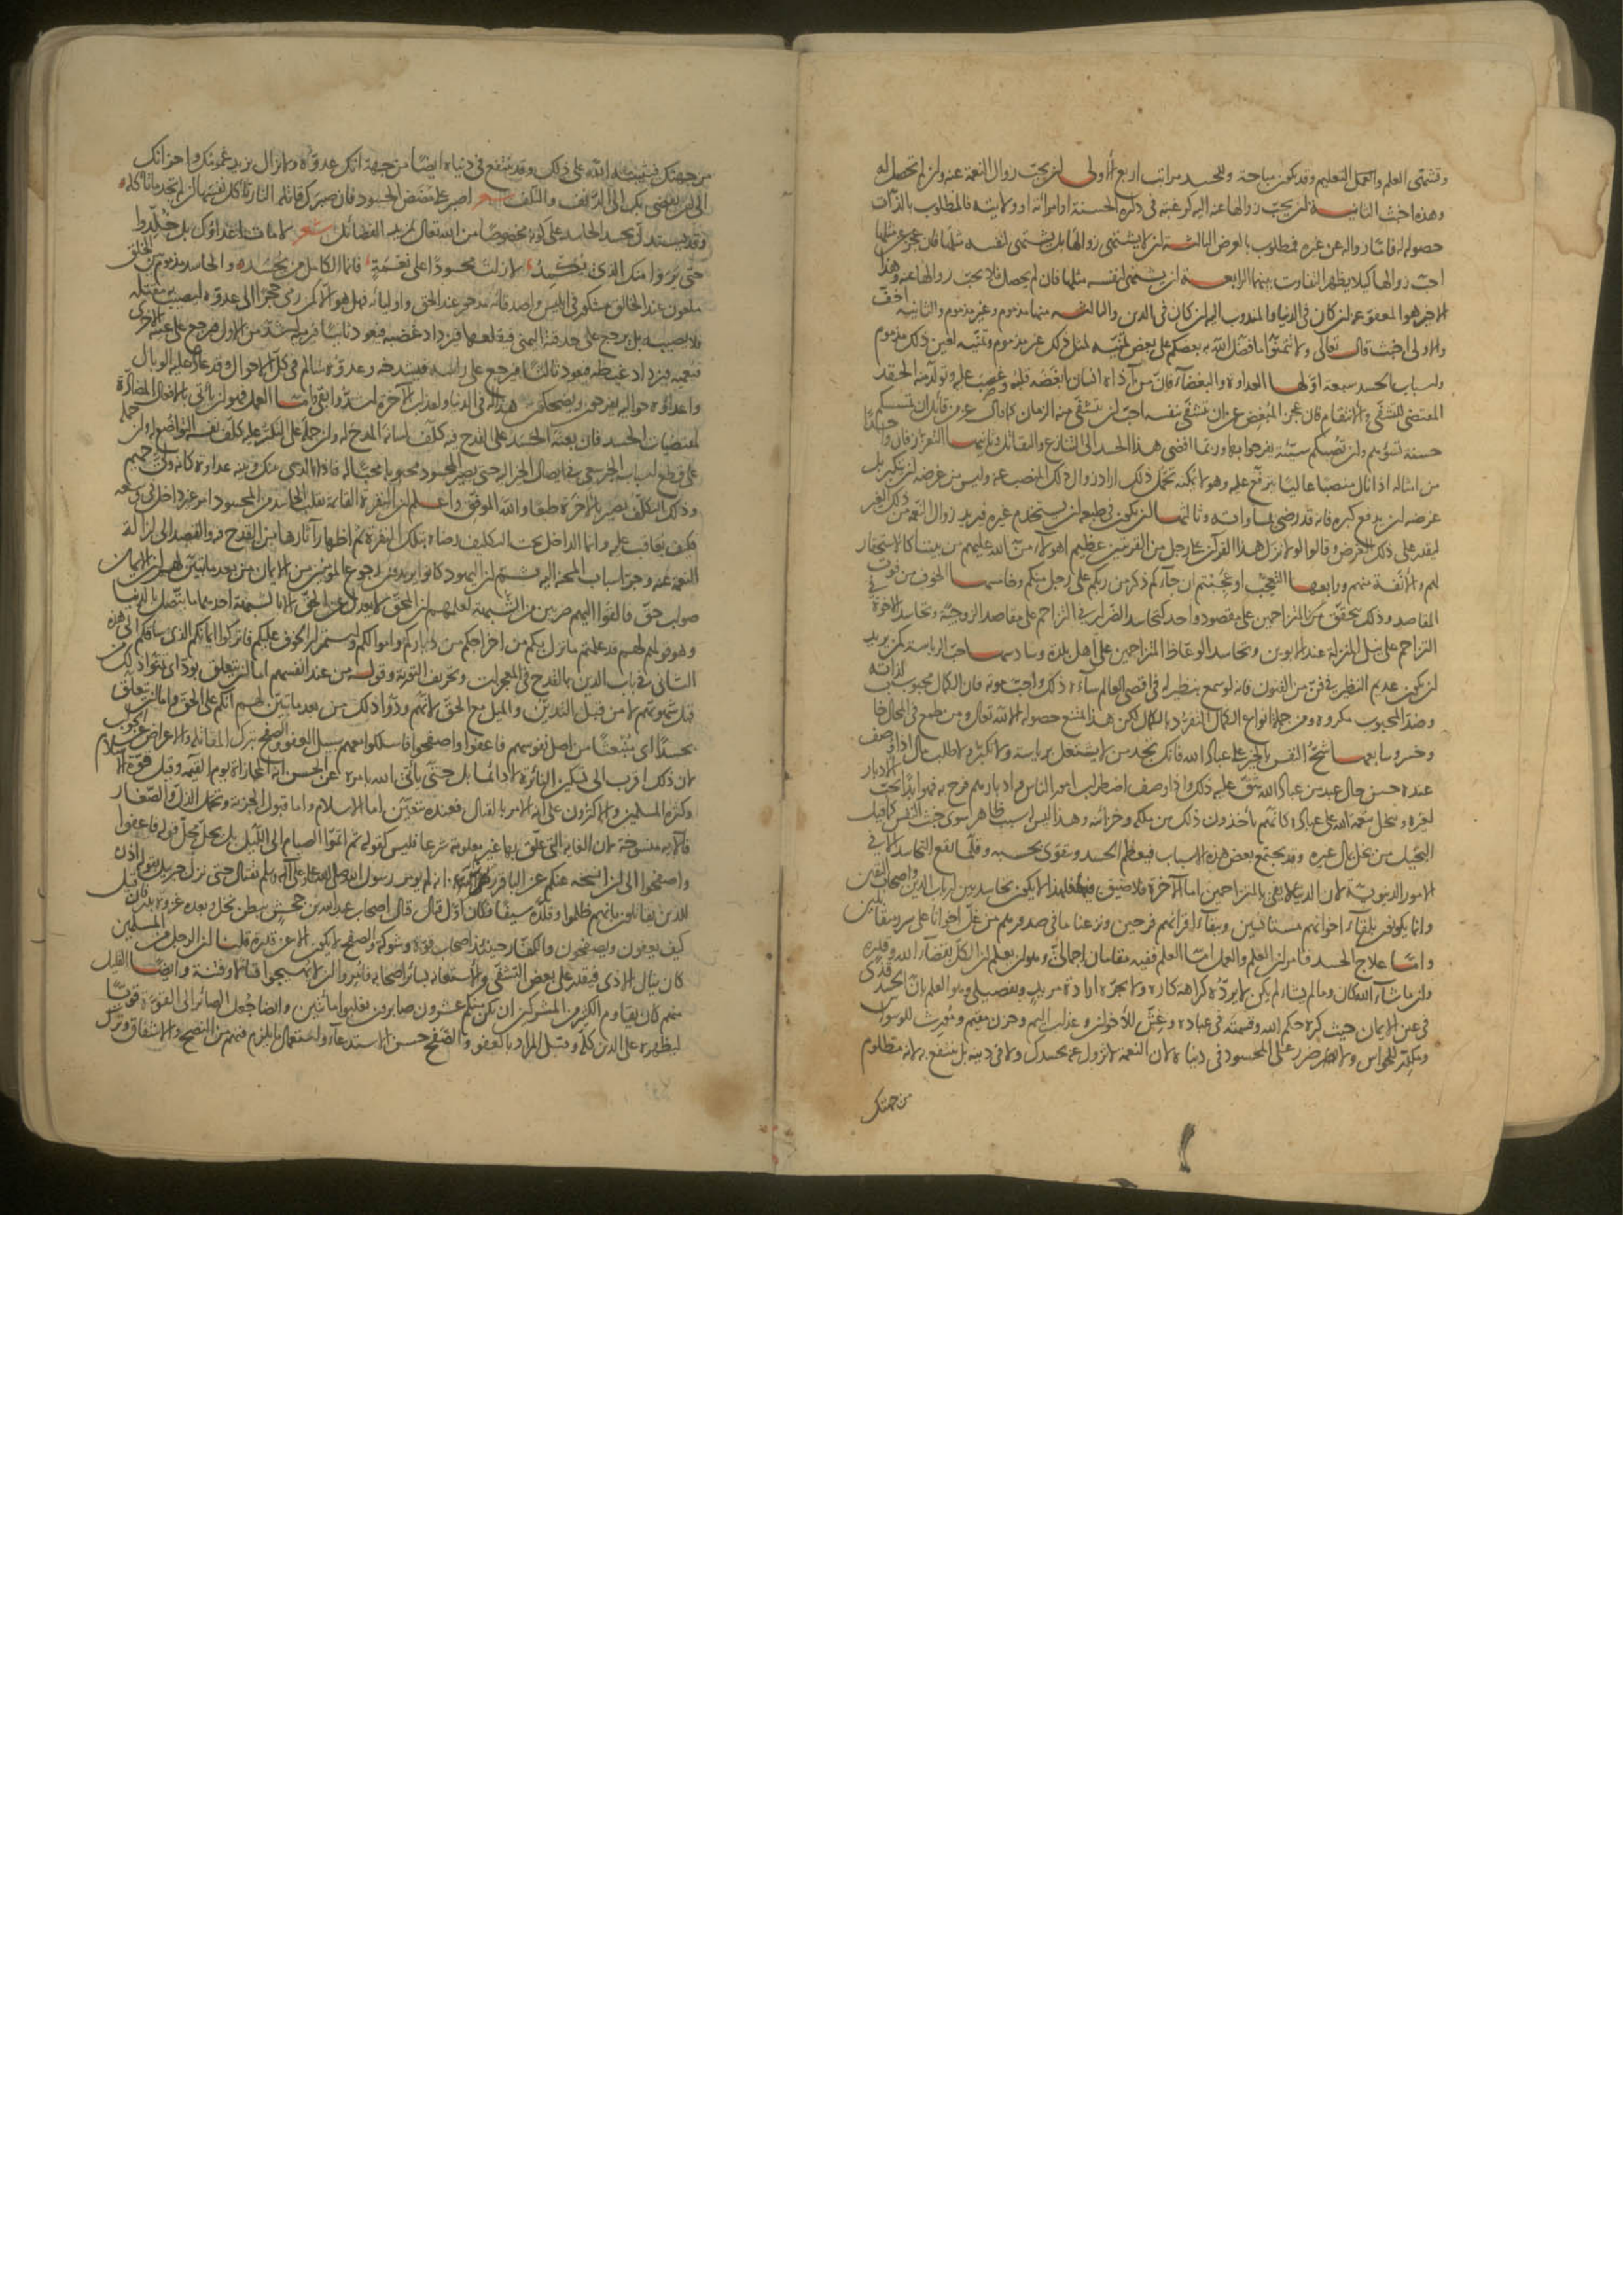 وتشتمى العلم والعمل التعليم وقد يكون مباحة وللحسد مراتب اربع الأولى ان يحب زوال النعمة عنه وان لم تحصل له
وهذه اخبث الثانية ان يحب زوالها عنه اليه كرغبته في داره الحسنة او امرأته او ولايته فالمطلوب بالذات
حصوله له فاما زواله عن غيره فمطلوب بالعرض الثالثة ان لا يشتهي زوالها بل يشتهي لنفسه مثلها فان عجز عن مثلها
احب زوالها كيلا يظهر التفاوت بينهما الرابعة ان يشتهي لنفسه مثلها فان لم يحصل فلا يحب زوالها عنه وهذا
الاخير هو المعفو عنه ان كان في الدنيا والمندوب اليه ان كان في الدين والثالثة منها مذموم وغير مذموم والثانية اخف
والاولى اخبث قال تعالى ولا تتمنوا ما فضل الله به بعضكم على بعض فتمنيه لمثل ذلك غير مذموم وتمنيه لعين ذلك مذموم
واسباب الحسد سبعة اولها العداوة والبغضاء فان من آذاه انسان ابغضه قلبه وغضب عليه وتولد منه الحقد
المقتضي للتشفي والانتقام فان عجز المبغض عن ان يتشفى بنفسه احب ان يتشفى منه الزمان كما قال عز من قائل ان تمسسكم
حسنة تسؤهم وان تصبكم سيئة يفرحوا بها وربما افضى هذا الحسد الى التنازع والتقاتل وثانيها التعزز فان واحدا
من امثاله اذا نال منصبا عاليا يترفع عليه وهو لا يمكنه تحمل ذلك اراد زوال ذلك المنصب عنه وليس من غرضه ان يتكبر بل
غرضه ان يدفع كبره فانه قد رضي بمساواته وثالثها ان يكون في طبعه ان يستخدم غيره فيريد زوال النعمة من ذلك الغير
ليقدر على ذلك الغرض وقالوا لولا نزل هذا القرآن على رجل من القريتين عظيم اهؤلاء من الله عليهم من بيننا كالاستحقار
لهم والانفة منهم ورابعها التعجب اوعجبتم ان جاءكم ذكر من ربكم على رجل منكم وخامسها الخوف من فوت
المقاصد وذلك يتحقق من المتزاحمين على مقصود واحد كتحاسد الضرائر في التزاحم على مقاصد الزوجية وتحاسد الاخوة في
التزاحم على نيل المنزلة عند الابوين وتحاسد الوعاظ المتزاحمين على اهل بلدة وسادسها حب الرياسة كمن يريد
ان يكون عديم النظير في فن من الفنون فانه لو سمع بنظير له في اقصى العالم ساءه ذلك واحب موته فان الكمال محبوب لذاته
وضد المحبوب مكروه ومن جملة انواع الكمال التفرد بالكمال لكن هذا ممتنع حصوله الا لله تعالى ومن طمع في المحال خاب
وخسر وسابعها شح النفس بالخير على عباد الله فانك تجد من لا يشتغل برياسة ولا تكبر ولا طلب مال اذا وصف
عنده حسن حال عبد من عباد الله شق عليه ذلك واذا وصف اضطراب امور الناس وادبارهم فرح به فهو ابدا يحب الادبار
لغيره ويبخل بنعمة الله على عباده كانهم يأخذون ذلك من ملكه وخزانته وهذا ليس له سبب ظاهر سوى خبث النفس كما قيل
البخيل من بخل بمال غيره وقد يجتمع بعض هذه الاسباب فيعظم الحسد ويتقوى بحسبه وقلما يقع التحاسد الا في
الامور الدنيوية لان الدنيا لا تفي بالمتزاحمين اما الآخرة فلا ضيق فيها فلهذا لا يكون تحاسد بين ارباب الدين واصحاب اليقين
وانما يكونون بلقاء اخوانهم مستأنسين وببقاء اقرانهم فرحين ونزعنا ما في صدورهم من غل اخوانا على سرر متقابلين
واما علاج الحسد فامران العلم والعمل اما العلم ففيه مقامان اجمالي وهو ان يعلم ان الكل بقضاء الله وقدره
وان ما شاء الله كان وما لم يشأ لم يكن لا يرده كراهة كاره ولا يجره ارادة مريد وتفصيلي وهو العلم بان الحسد قذى
في عين الايمان حيث كره حكم الله وقسمته في عباده وغش للاخوان وعذاب اليم وحزن مقيم ومورث للوسواس
ومكدر للحواس ولا ضرر على المحسود في دنياه لان النعمة لا تزول عنه بحسدك ولا في دينه بل ينتفع به لانه مظلوم
من جهتك
من جهتك فيثيبه الله على ذلك وقد ينتفع في دنياه ايضا من جهة انك عدوه ولا يزال يزيد غمومك واحزانك
الى ان يفضي بك الى الدنف والتلف شعر اصبر على مضض الحسود فان صبرك قاتله النار تأكل نفسها ان لم تجد ما تأكله
وقد يستدل بحسد الحاسد على كونه مخصوصا من الله تعالى بمزيد الفضائل شعر لا مات اعداؤك بل خلدوا
حتى يروا منك الذي يكمد لا زلت محسودا على نعمة فانما الكامل من يحسد والحاسد مذموم بين الخلق
ملعون عند الخالق مشكور عند ابليس واصدقائه مدحور عند الحق واوليائه فهل هو الا كمن رمى حجرا الى عدوه ليصيب به مقتله
فلا يصيبه بل يرجع على حدقته اليمنى فيقلعها فيزداد غضبه فيعود ثانيا فيرميه اشد من الاول فيرجع على عينه الاخرى
فيعميه فيزداد غيظه فيعود ثالثا فيرجع على رأسه فيشدخه وعدوه سالم في كل الاحوال وقد عاد عليه الوبال
واعداؤه حواليه يفرحون ويضحكون هذا له في الدنيا ولعذاب الآخرة اشد وابقى واما العمل فهو ان يأتي بالافعال المضادة
لمقتضيات الحسد فان بعثه الحسد على القدح فيه كلف لسانه المدح له وان حمله على التكبر عليه كلف نفسه التواضع له وان حمله
على قطع اسباب الخير سعى في ايصال الخير اليه حتى يصير المحسود محبوبا محبا له فاذا الذي بينك وبينه عداوة كانه ولي حميم
وذلك التكلف يصير بالاخرة طبعا والله الموفق واعلم ان النفرة القائمة بقلب الحاسد من المحسود امر غير داخل في وسعه
فكيف يعاقب عليه وانما الداخل تحت التكليف رضاه بتلك النفرة ثم اظهار آثارها من القدح فيه والقصد الى ازالة
النعمة عنه وجر اسباب المحنة اليه ثم ان اليهود كانوا يريدون رجوع المؤمنين من الايمان من بعد ما تبين لهم ان الايمان
صواب حق فالقوا اليهم ضربين من الشبهة لعلمهم ان المحق لا يعدل عن الحق الا بالشبهة احدهما ما يتصل بالدنيا
وهو قولهم لهم قد علمتم ما نزل بكم من اخراجكم من دياركم واموالكم واستمرار الخوف عليكم فاتركوا ايمانكم الذي ساقكم الى هذه
الثاني في باب الدين بالقدح في المعجزات وتحريف التورية وقوله من عند انفسهم اما ان يتعلق بود اي تمنوا ذلك من
قبل شهوتهم لا من قبل التدين والميل مع الحق لانهم ودوا ذلك من بعد ما تبين لهم انكم على الحق واما ان يتعلق
بحسدا اي منبعثا من اصل نفوسهم فاعفوا واصفحوا فاسلكوا معهم سبيل العفو والصفح بترك المقاتلة والاعراض عن الجواب
لان ذلك اقرب الى تسكين النائرة لا دائما بل حتى يأتي الله بامره عن الحسن انه المجازاة يوم القيمة وقيل قوة الاسلام
وكثرة المسلمين والاكثرون على انه الامر بالقتال فعنده يتعين اما الاسلام واما قبول الجزية وتحمل الذل والصغار
فالآية منسوخة لان الغاية التي علق بها غير معلومة شرعا فليس كقوله ثم اتموا الصيام الى الليل بل يحل محل قوله فاعفوا
واصفحوا الى ان انسخه عنكم عن الباقر انه لم يؤمر رسول الله صلى الله عليه وآله وسلم بقتال حتى نزل جبريل بقوله اذن
للذين يقاتلون بانهم ظلموا وقلده سيفا فكان اول قتال قاتل اصحاب عبد الله بن جحش ببطن نخل وبعده غزوة بدر فان قيل
كيف يعفون ويصفحون والكفار حينئذ اصحاب قوة وشوكة والصفح لا يكون الا عن قدرة قلنا ان الرجل من المسلمين
كان ينال الاذى فيقدر على بعض التشفي والاستعانة بسائر اصحابه فأمروا ان لا يهيجوا قتالا وفتنة وايضا القليل
منهم كان يقاوم الكثير من المشركين ان يكن منكم عشرون صابرون يغلبوا مائتين وايضا جعل الصائر الى القوة قويا
ليظهره على الدين كله وقيل المراد بالعفو والصفح حسن الاستدعاء واستعمال ما يلزم فيهم من النصح والاشفاق وترك